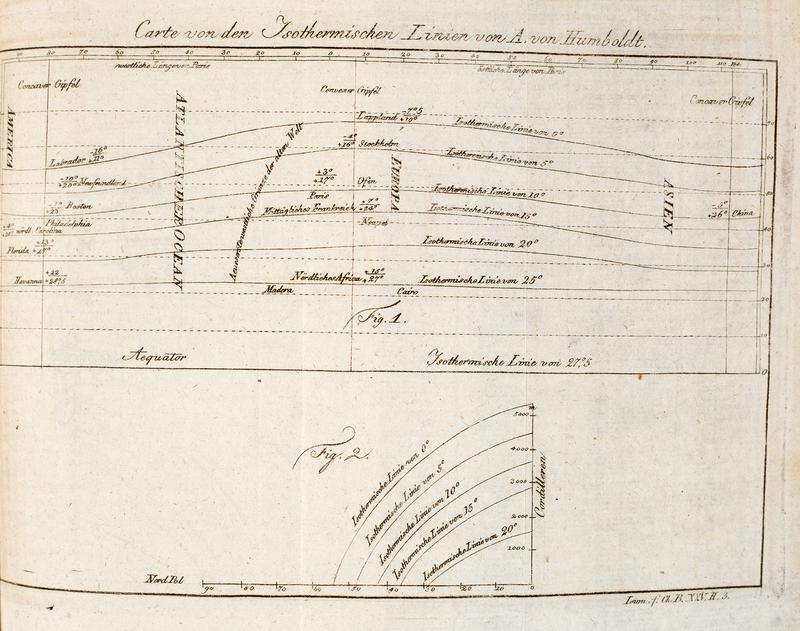 Carte von den Isothermischen Linien von A. von Humboldt.
80 70 60 50 40 30 20 10 0 10 20 30 40 50 60 70 80 90 100 110
westliche Länge von Paris
östliche Länge von Paris
Concaver Gipfel
Convexer Gipfel
Concaver Gipfel
AMERICA
ATLANTISCHER OCEAN
Aeusserste westliche Grenze der alten Welt
EUROPA
ASIEN
Lappland
Isothermische Linie von 0°
70
Stockholm
Labrador
Isothermische Linie von 5°
60
+3°
+17°
Ofen
Neufoundland
Isothermische Linie von 10°
50
Paris
Boston
Mittägliches Frankreich
Isothermische Linie von 15°
-5°
+26°
China
Philadelphia
Neapel
40
nördl. Carolina
Isothermische Linie von 20°
Florida
30
Havanna
Nördliches Africa
+15°
+27°
Isothermische Linie von 25°
Madera
Cairo
20
Fig. 1.
10
Aequator
Isothermische Linie von 27°,5
0
Fig. 2.
m
5000
4000
3000
2000
1000
Cordilleren
Isothermische Linie von 0°
Isothermische Linie von 5°
Isothermische Linie von 10°
Isothermische Linie von 15°
Isothermische Linie von 20°
Nord Pol
90 80 70 60 50 40 30 20 10 0